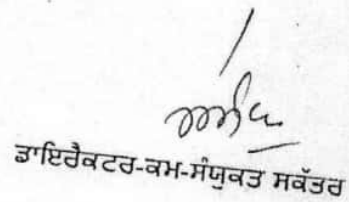 ਡਾਇਰੈਕਟਰ-ਕਮ-ਸੰਯੁਕਤ ਸਕੱਤਰ